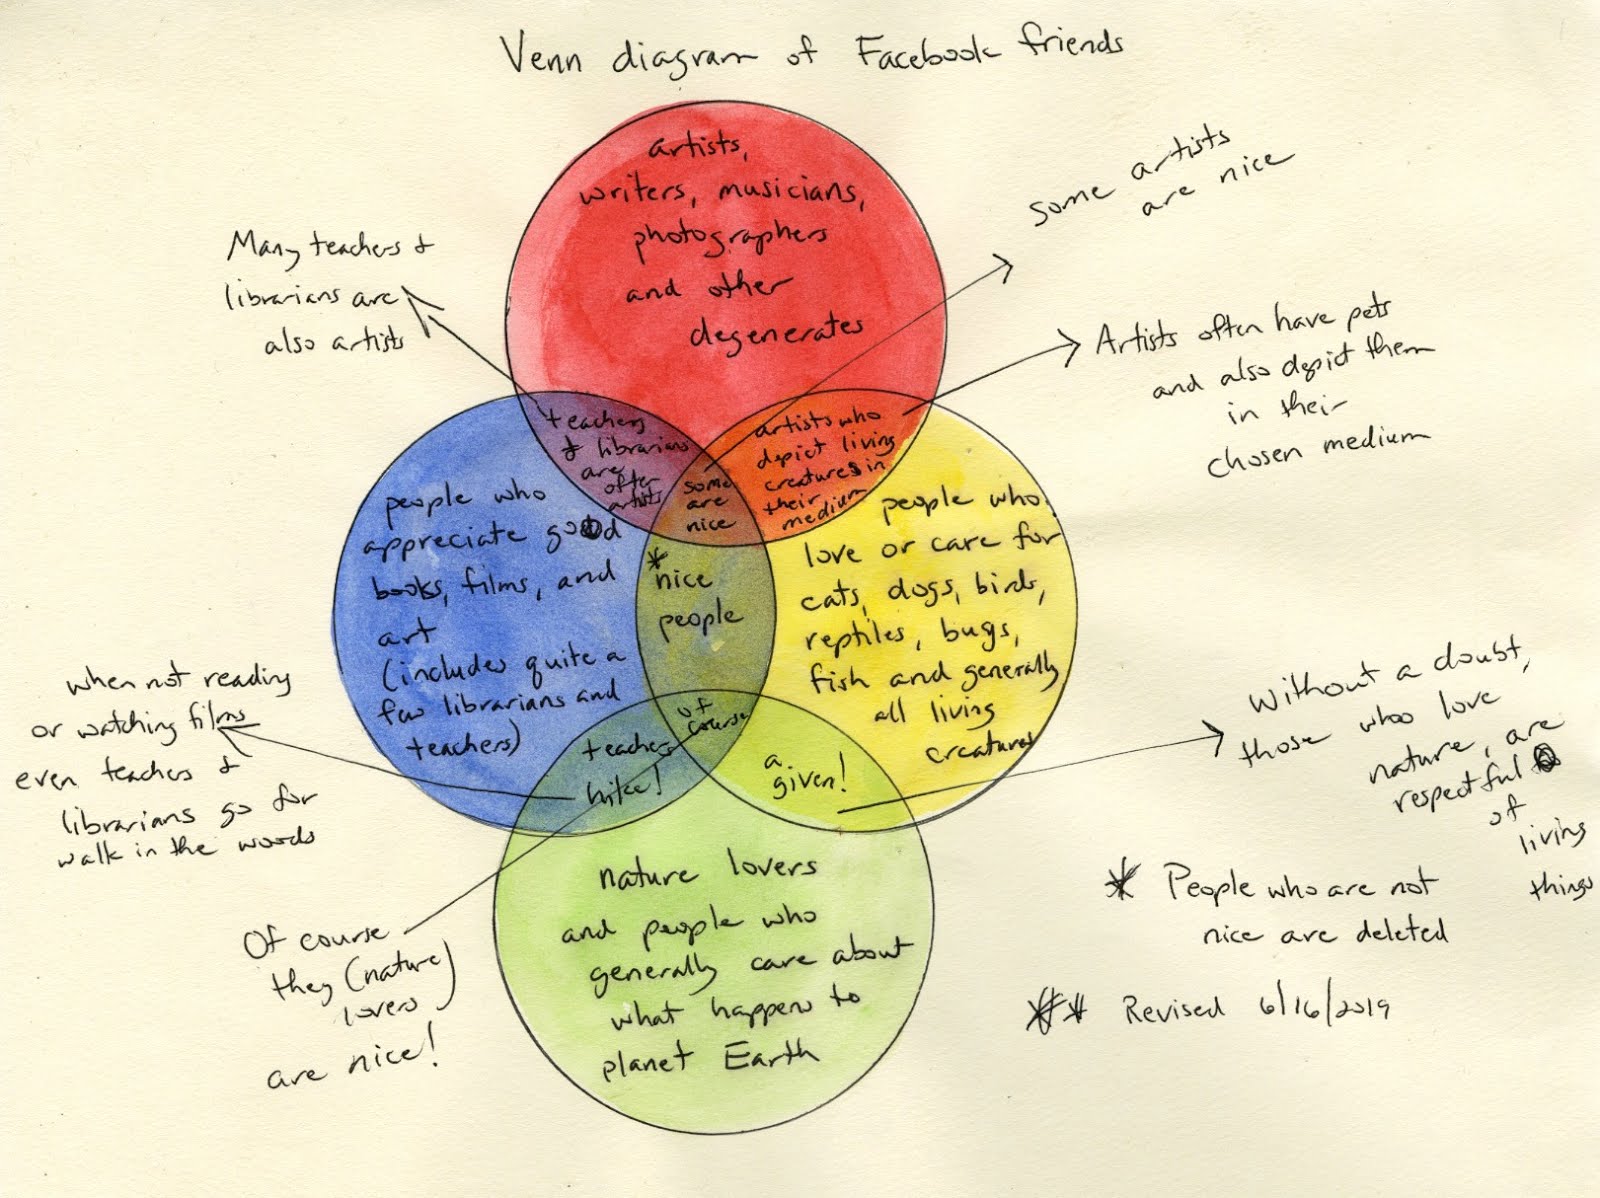 Venn diagram of Facebook friends
artists,
writers, musicians,
photographers
and other
degenerates
some artists
are nice
Many teachers &
librarians are
also artists
Artists often have pets
and also depict them
in their
chosen medium
teachers
& librarians
are
often
artists
some
are
nice
artists who
depict living
creatures in
their
medium
people who
appreciate good
books, films, and
art
(includes quite a
few librarians and
teachers)
* nice
people
people who
love or care for
cats, dogs, birds,
reptiles, bugs,
fish and generally
all living
creatures
when not reading
or watching films
even teachers &
librarians go for
walk in the woods
teachers
hike!
of
course
a
given!
Without a doubt,
those who love
nature, are
respectful
of
living
things
nature lovers
and people who
generally care about
what happens to
planet Earth
Of course
they (nature
lovers)
are nice!
* People who are not
nice are deleted
** Revised 6/16/2019